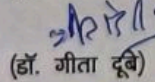 (डॉ. गीता दूबे)